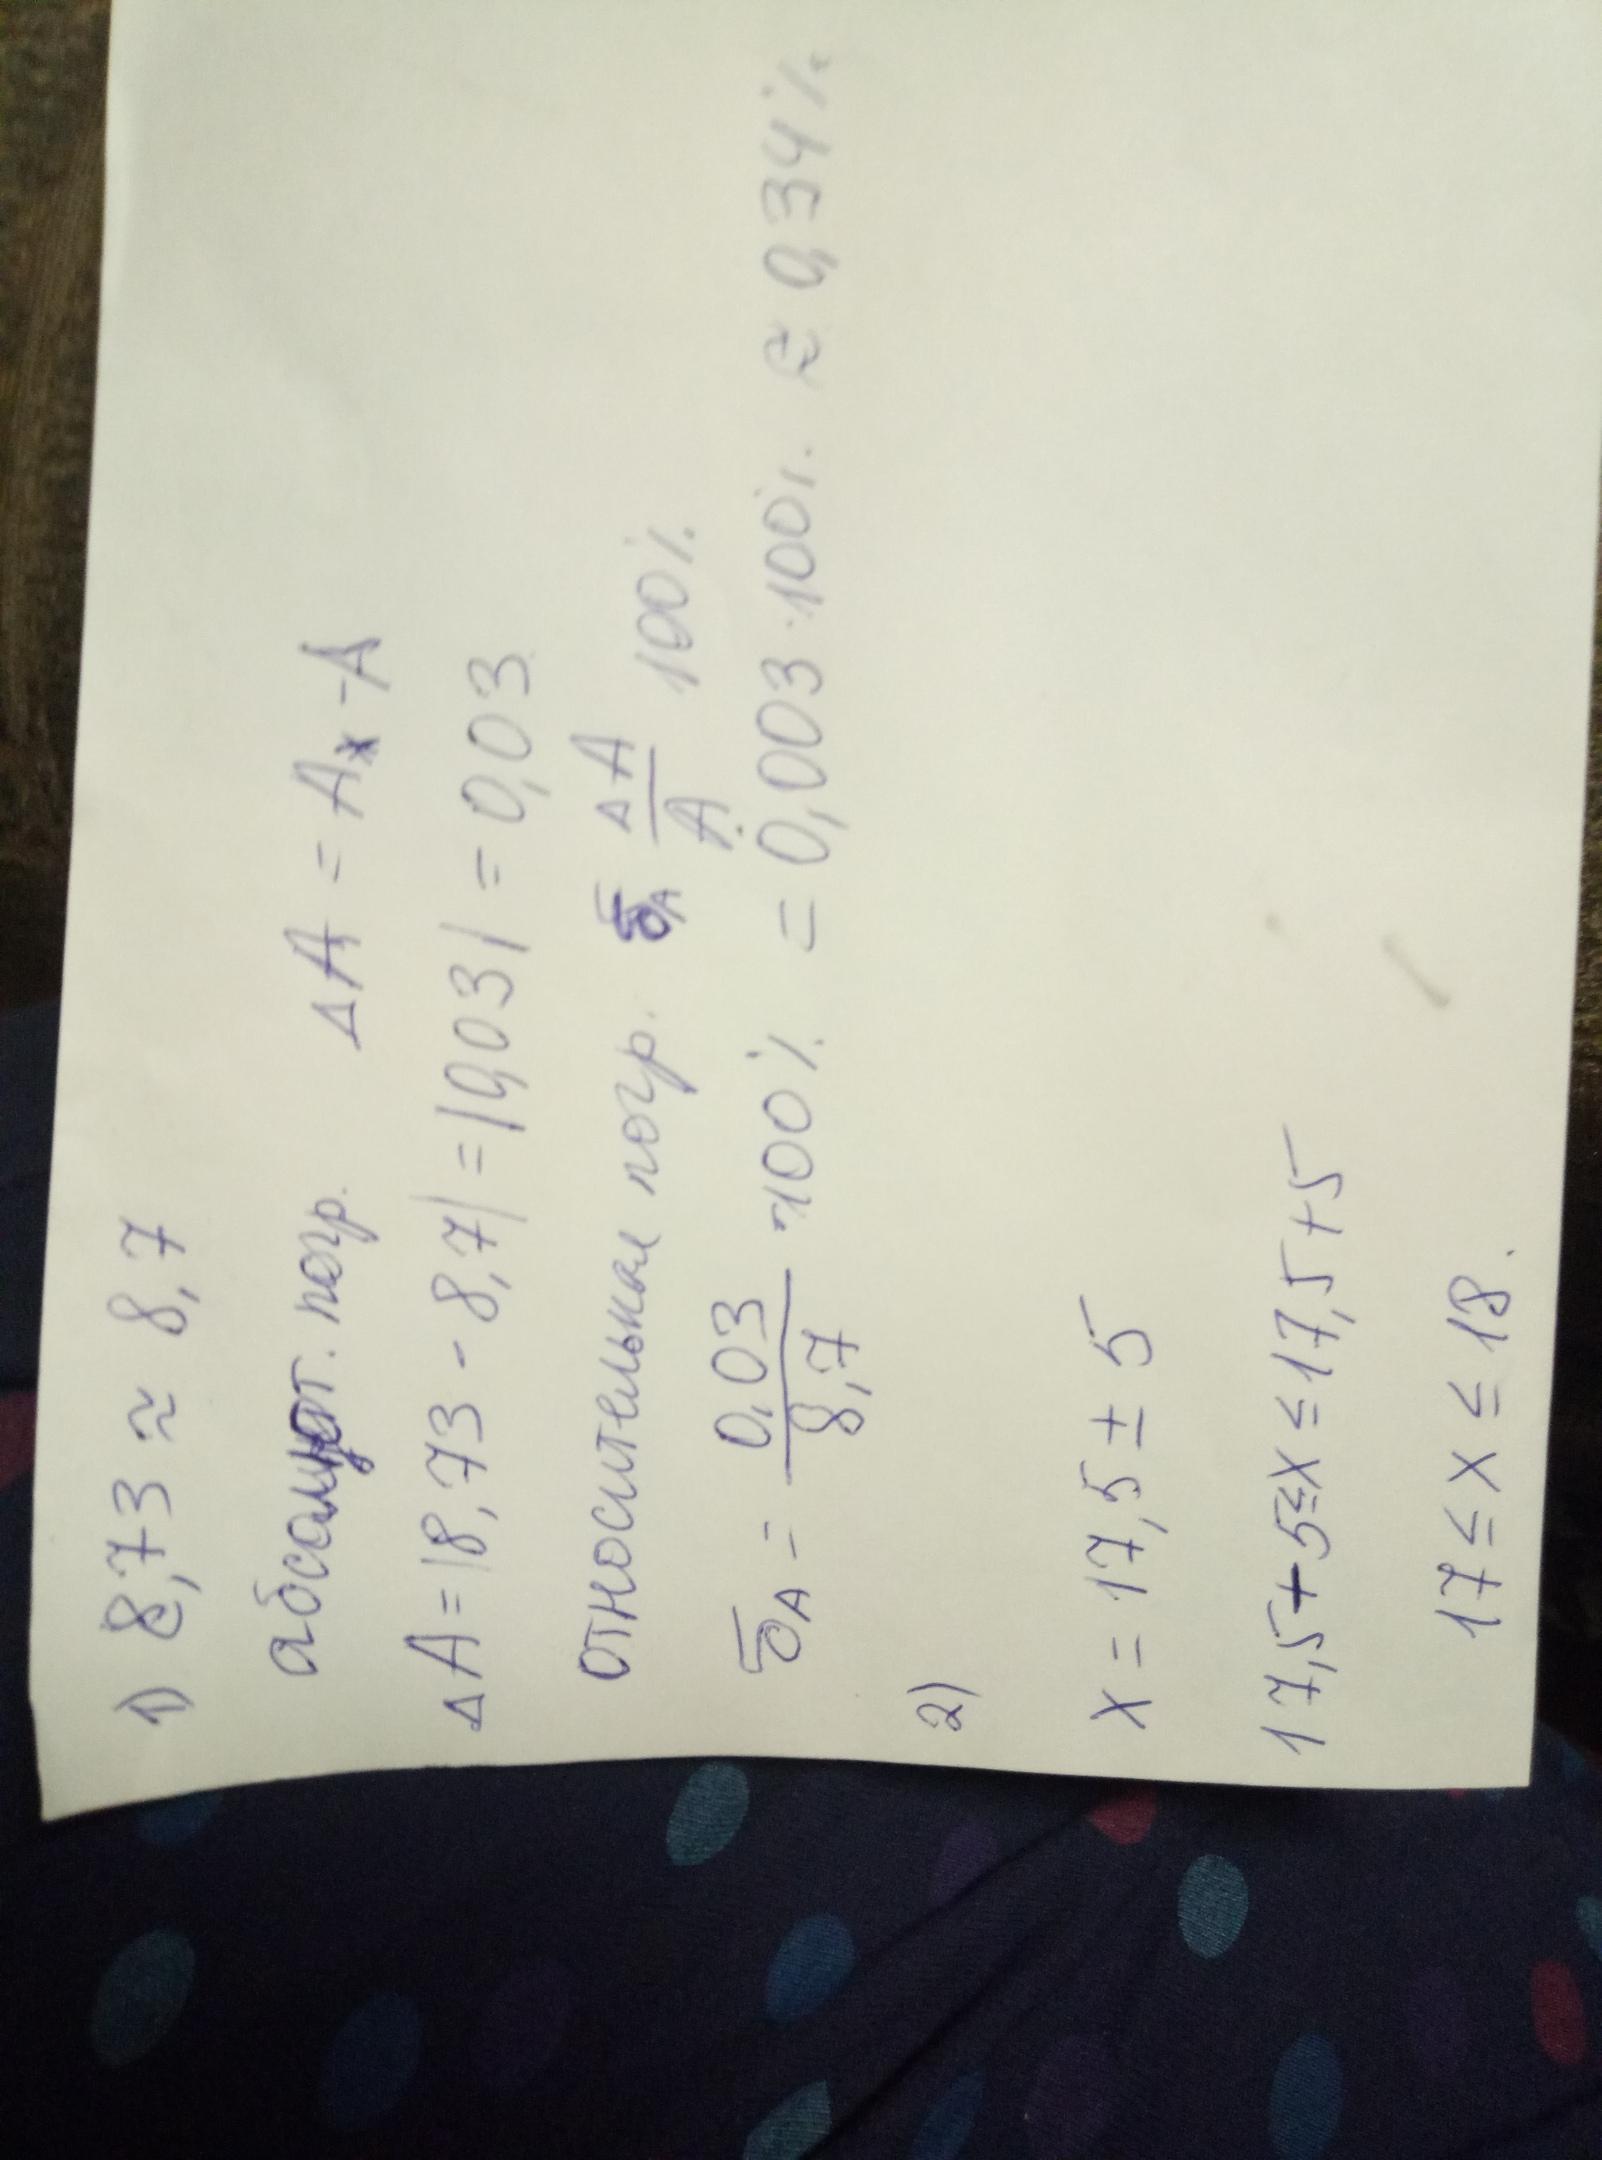 1) 8,73 ≈ 8,7
абсолют. погр. ΔA = Aₓ - A
ΔA = |8,73 - 8,7| = |0,03| = 0,03
относительная погр. δA ΔA/A 100%
δA = 0,03/8,7 · 100% = 0,003 · 100% ≈ 0,34%
2)
x = 17,5 ± 5
17,5 + 5 ≤ x ≤ 17,5 + 5
17 ≤ x ≤ 18.